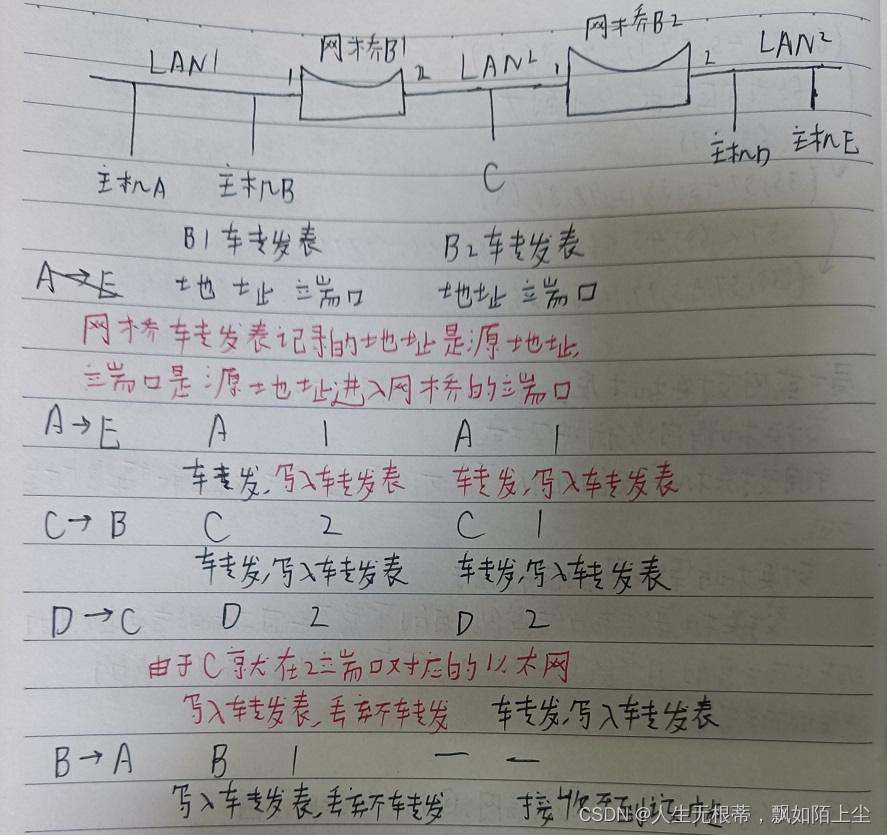 LAN1 网桥B1 LAN2 网桥B2 LAN2
1 2 1 2
主机A 主机B C 主机D 主机E
B1转发表 B2转发表
A→E 地址 端口 地址 端口
网桥转发表记录的地址是源地址,
端口是源地址进入网桥的端口
A→E A 1 A 1
转发,写入转发表 转发,写入转发表
C→B C 2 C 1
转发,写入转发表 转发,写入转发表
D→C D 2 D 2
由于C就在2端口对应的以太网
写入转发表,丢弃不转发 转发,写入转发表
B→A B 1 — —
写入转发表,丢弃不转发 接收不到
CSDN @人生无根蒂，飘如陌上尘